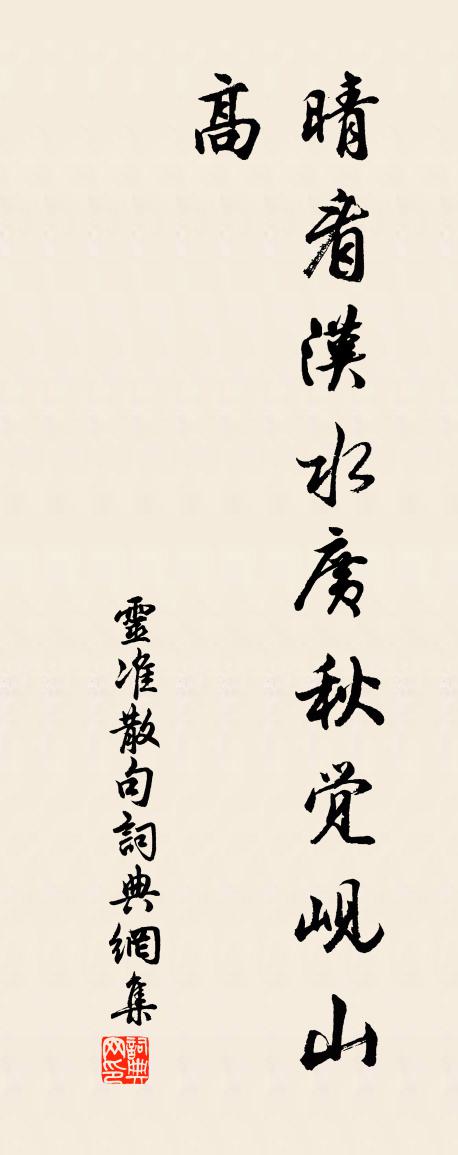 晴看漢水廣秋覺峴山
高
靈准散句詞典網集
詞典网印